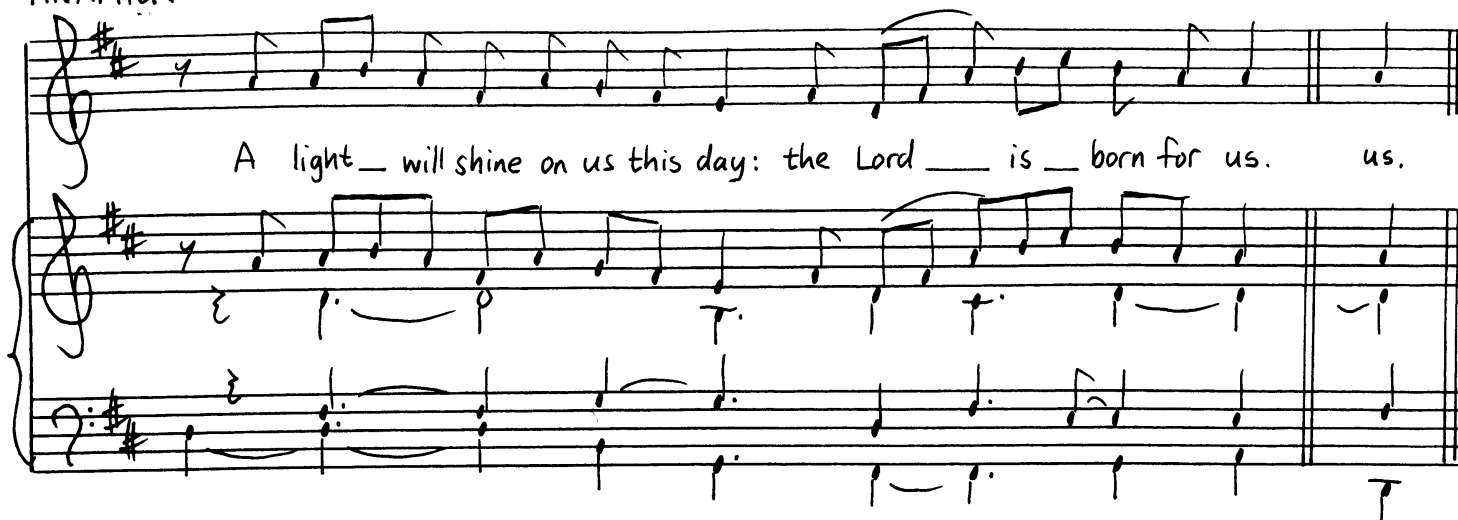 A light_ will shine on us this day: the Lord ___ is _ born for us. us.